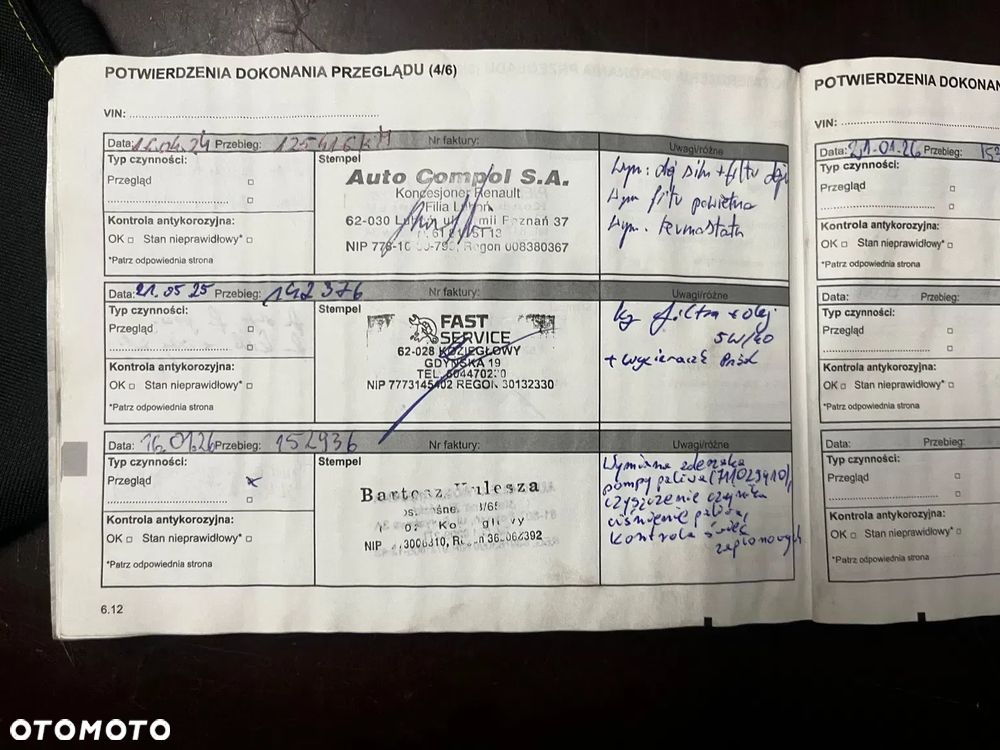 POTWIERDZENIA DOKONANIA PRZEGLĄDU (4/6)
VIN:
Data: 16.04.24 Przebieg: 125416 KM Nr faktury: Uwagi/różne
Typ czynności:
Przegląd
Kontrola antykorozyjna:
OK Stan nieprawidłowy*
*Patrz odpowiednia strona
Stempel
Auto Compol S.A.
Koncesjoner Renault
Filia
62-030 Poznań 37
NIP Regon 008380367
Wym: olej siln + filtr olej
Wym filtr powietrza
Wym. termostatu
Data: 21.05 25 Przebieg: 142376 Nr faktury: Uwagi/różne
Typ czynności:
Przegląd
Kontrola antykorozyjna:
OK Stan nieprawidłowy*
*Patrz odpowiednia strona
Stempel
FAST
SERVICE
62-028 KOZIEGŁOWY
GDYŃSKA 19
TEL.
NIP 7773145402 REGON 30132330
filtra + olej
5W/40
+ wycieraczek
Data: 16.01.26 Przebieg: 152936 Nr faktury: Uwagi/różne
Typ czynności:
Przegląd x
Kontrola antykorozyjna:
OK Stan nieprawidłowy*
*Patrz odpowiednia strona
Stempel
Bartosz Kulesza
NIP
Wymiana
pompy paliwa
czyszczenie czujnika
ciśnienie paliwa,
kontrola świec
zapłonowych
6.12
POTWIERDZENIA DOKONAN
VIN:
Data: 21.01.26 Przebieg:
Typ czynności:
Przegląd
Kontrola antykorozyjna:
OK Stan nieprawidłowy*
*Patrz odpowiednia strona
Data: Przebieg:
Typ czynności:
Przegląd
Kontrola antykorozyjna:
OK Stan nieprawidłowy*
*Patrz odpowiednia strona
Data: Przebieg:
Typ czynności:
Przegląd
Kontrola antykorozyjna:
OK Stan nieprawidłowy*
*Patrz odpowiednia strona
OTOMOTO